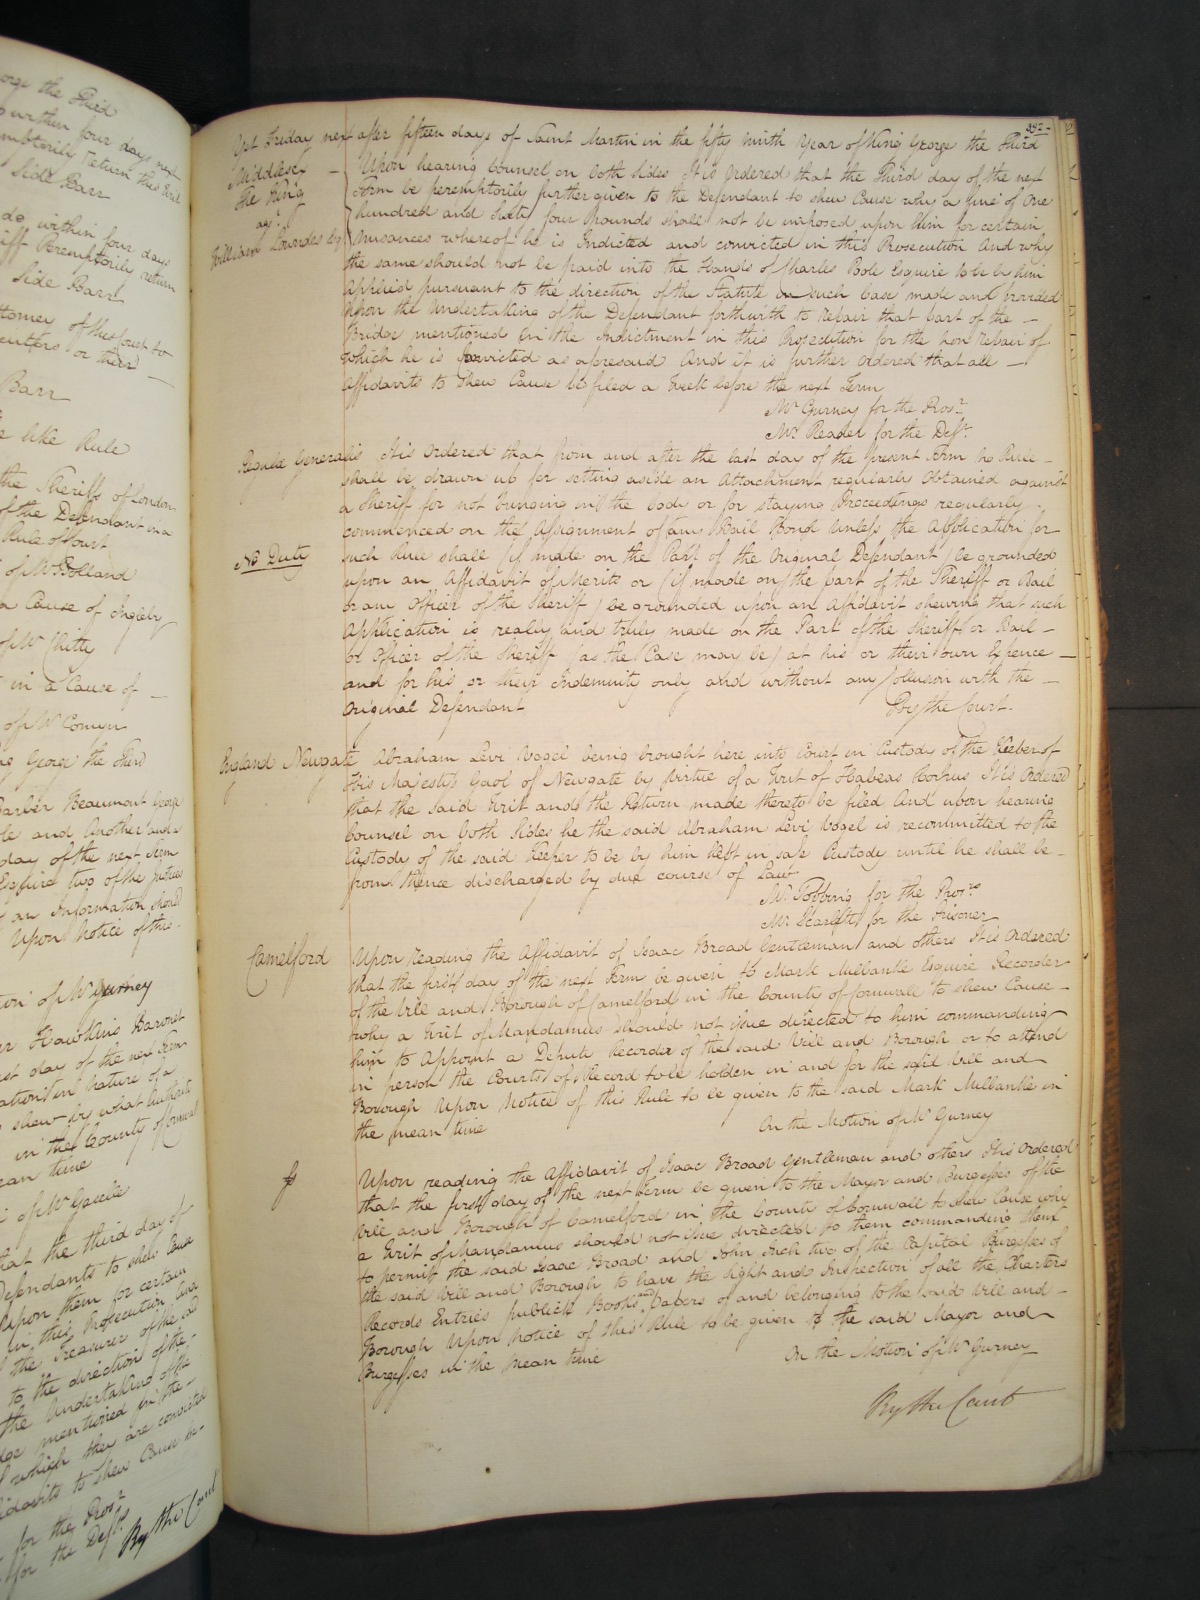 orge the Third
within four days next
mptorily return this Writ
Side Barr
do within four days
iff Peremptorily return
Side Barr
ttorney of this Court to
cutors or their
Barr
e like Rule
the Sheriffs of London
of the Defendant in a
Rule of Court
of Mr Bolland
a Cause of Ingleby
of Mr Chitty
in a Cause of
of Mr Comyn
ng George the Third
Barber Beaumont George
le and Another and a
day of the next Term
Esquire two of the justices
an Information should
Upon Notice of this
tion of Mr Gurney
Hawkins Baronet
st day of the next Term
ation in Nature of a
shew by what Authority
in the County of Cornwall
ean time
of Mr Gaselee
at the third day of
Defendants to shew Cause
upon them for certain
in this Prosecution and
the Treasurer of the said
to the direction of the
the Undertaking of the
dge mentioned in the
which they are convicted
idavits to shew Cause be
for the Prosr
for the Defts
By the Court
392
Yet Friday next after fifteen days of Saint Martin in the fifty ninth Year of King George the Third
Middlesex Upon hearing Counsel on both sides It is ordered that the Third day of the next
The King Term be peremptorily further given to the Defendant to shew Cause why a fine of One
agt hundred and sixty four Pounds shall not be imposed upon him for certain
William Lowndes Esqr Nuisances whereof he is Indicted and convicted in this Prosecution And why
the same should not be paid into the Hands of Charles Bole Esquire to be by him
applied pursuant to the direction of the Statute in such Case made and provided
Upon the Undertaking of the Defendant forthwith to repair that part of the
Bridge mentioned in the Indictment in this Prosecution for the non repair of
which he is Convicted as aforesaid And it is further ordered that all
Affidavits to shew Cause be filed a Week before the next Term
Mr Gurney for the Prosr
Mr Reader for the Deft
Regula Generalis It is Ordered that from and after the last day of the present Term no Rule
shall be drawn up for setting aside an Attachment regularly Obtained against
a Sheriff for not bringing in the body or for staying Proceedings regularly
commenced on the Assignment of any Bail Bond unless the Application for
No Duty such Rule shall (if made on the Part of the Original Defendant) be grounded
upon an Affidavit of Merits or (if made on the part of the Sheriff or Bail
or any Officer of the Sheriff) be grounded upon an Affidavit shewing that such
Application is really and truly made on the Part of the Sheriff or Bail
or Officer of the Sheriff (as the Case may be) at his or their own Expence
and for his or their Indemnity only and without any Collusion with the
Original Defendant By the Court.
England Newgate Abraham Levi Vogel being brought here into Court in Custody of the Keeper of
His Majesty's Gaol of Newgate by virtue of a Writ of Habeas Corpus It is Ordered
that the said Writ and the Return made thereto be filed And upon hearing
Counsel on both sides he the said Abraham Levi Vogel is recommitted to the
Custody of the said Keeper to be by him kept in safe Custody until he shall be
from thence discharged by due course of Law
Mr Tobbing for the Prosrs
Mr Scarlett for the Prisoner
Camelford Upon reading the Affidavit of Isaac Broad Gentleman and others It is Ordered
that the first day of the next Term be given to Mark Milbanke Esquire Recorder
of the Vill and Borough of Camelford in the County of Cornwall to shew Cause
why a Writ of Mandamus should not issue directed to him commanding
him to Appoint a Deputy Recorder of the said Vill and Borough or to attend
in person the Courts of Record to be holden in and for the said Vill and
Borough Upon Notice of this Rule to be given to the said Mark Milbanke in
the mean time On the Motion of Mr Gurney
Upon reading the Affidavit of Isaac Broad Gentleman and others It is Ordered
that the first day of the next Term be given to the Mayor and Burgesses of the
Vill and Borough of Camelford in the County of Cornwall to shew Cause why
a Writ of Mandamus should not issue directed to them commanding them
to permit the said Isaac Broad and John two of the Capital Burgesses of
the said Vill and Borough to have the sight and Inspection of all the Charters
Records Entries publick Books and Papers of and belonging to the said Vill and
Borough Upon Notice of this Rule to be given to the said Mayor and
Burgesses in the mean time On the Motion of Mr Gurney
By the Court